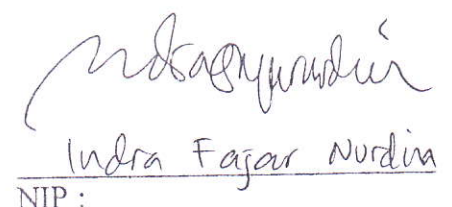 Indra Fajar Nurdin
NIP :